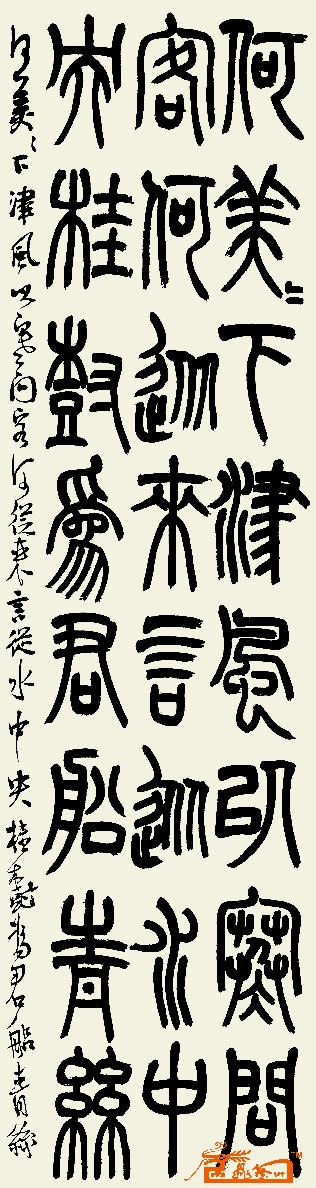 何美〻下津風以寒問
客何從來言從水中
央桂樹爲君船青絲
何美〻下津風以寒問客何從來言從水中央桂樹爲君船青絲